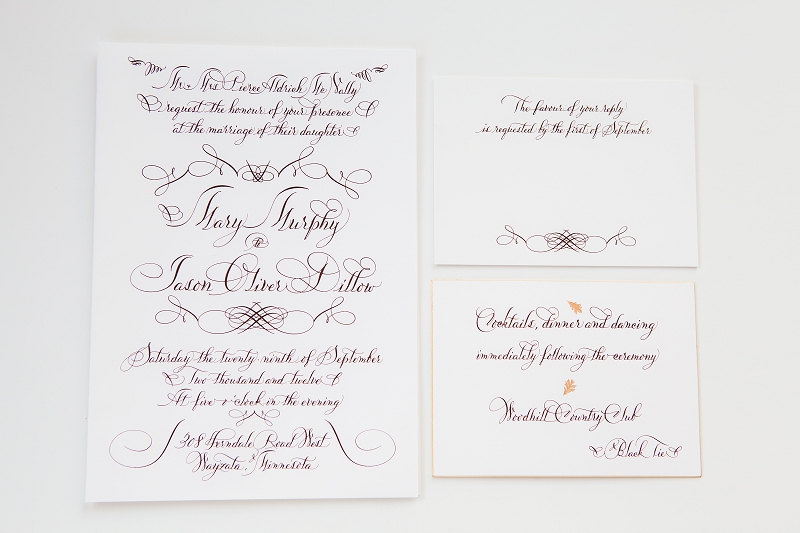 Mr. + Mrs. Pierce Aldrich Mc Nally
request the honour of your presence
at the marriage of their daughter
Mary Murphy
to
Jason Oliver Dillow
Saturday the twenty ninth of September
Two thousand and twelve
At five o'clock in the evening
308 Ferndale Road West
Wayzata, Minnesota
The favour of your reply
is requested by the first of September
Cocktails, dinner and dancing
immediately following the ceremony
Woodhill Country Club
Black Tie